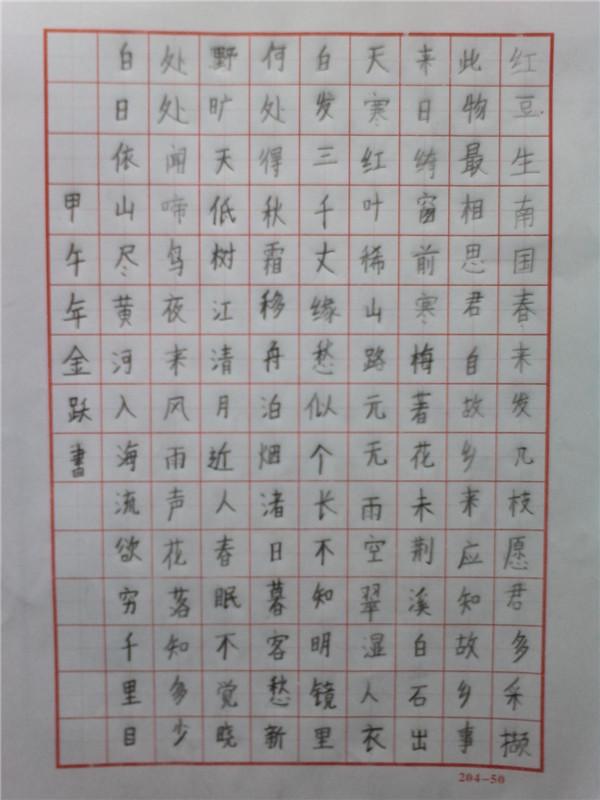 红豆生南国春来发几枝愿君多采撷
此物最相思君自故乡来应知故乡事
来日绮窗前寒梅著花未荆溪白石出
天寒红叶稀山路元无雨空翠湿人衣
白发三千丈缘愁似个长不知明镜里
何处得秋霜移舟泊烟渚日暮客愁新
野旷天低树江清月近人春眠不觉晓
处处闻啼鸟夜来风雨声花落知多少
白日依山尽黄河入海流欲穷千里目
甲午年金跃書
204-50